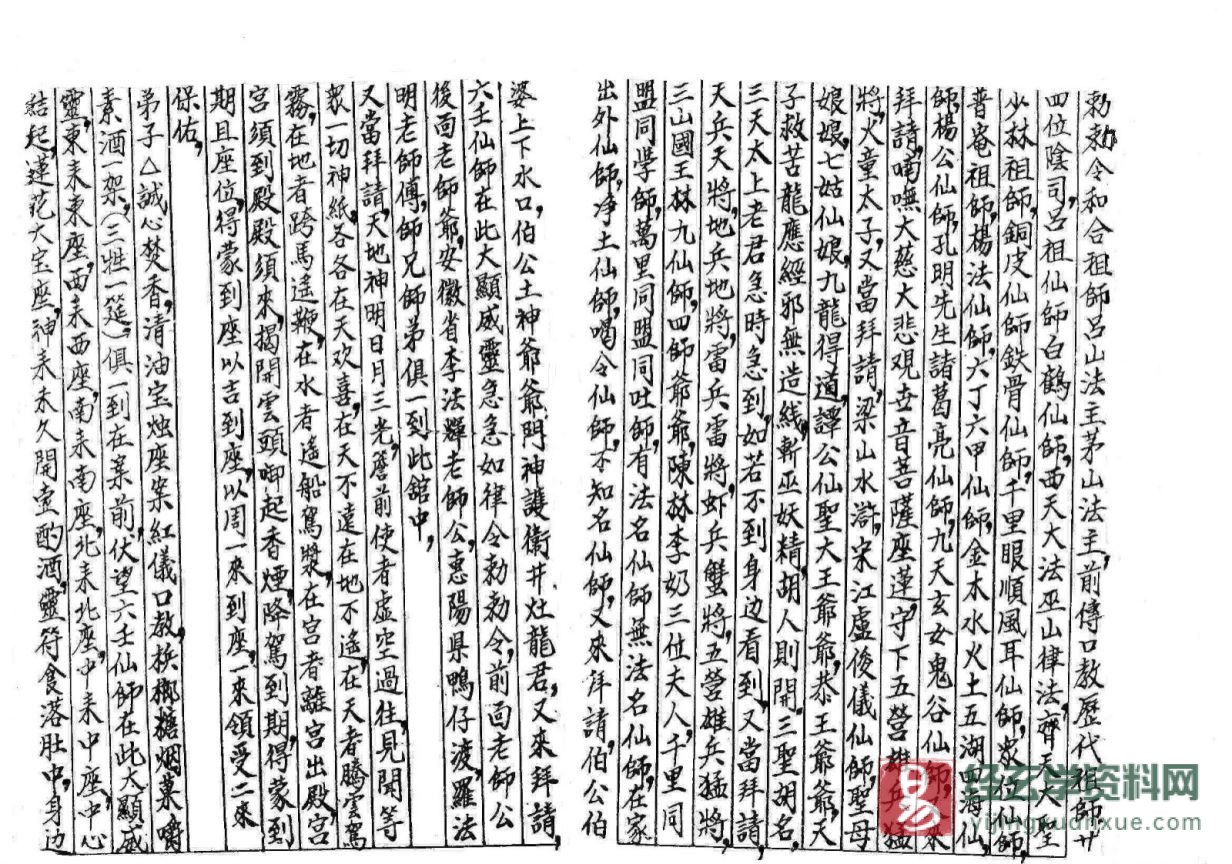 勅勅令和合祖師呂山法主茅山法主,前傳口教歷代祖師廿
四位陰司,呂祖仙師白鶴仙師,西天大法巫山律法齊天大聖
少林祖師,銅皮仙師鉄骨仙師,千里眼順風耳仙師,众位仙師,
普庵祖師,楊法仙師,六丁六甲仙師,金木水火土五湖四海仙
師,楊公仙師,孔明先生諸葛亮仙師,九天玄女鬼谷仙師,又來
拜請,喃嘸大慈大悲观世音菩薩座蓮,守下五营雄兵猛
將,火童太子,又當拜請,梁山水滸,宋江盧俊儀仙師,聖母
娘娘,七姑仙娘,九龍得道,譚公仙聖大王爺爺,恭王爺爺,天
子救苦龍應經邪無造线,斬巫妖精,胡人則開,三聖胡名,
三天太上老君急時急到,如若不到身边看到,又當拜請,
天兵天將,地兵地將,雷兵雷將,虾兵蟹將,五营雄兵猛將,
三山國王林九仙師,四師爺爺,陳林李奶三位夫人,千里同
盟同學師,萬里同盟同吐師,有法名仙師無法名仙師,在家
出外仙師,净土仙師,喝令仙師,不知名仙師,又來拜請,伯公伯
婆上下水口,伯公土神爺爺,門神護衛井灶龍君,又來拜請,
六壬仙師在此大顯威靈急急如律令勅勅令,前面老師公
後面老師爺,安徽省李法輝老師公,惠陽県鴨仔渡羅法
明老師傅,師兄師弟俱一到此舘中,
又當拜請,天地神明日月三光,簷前使者虚空過往,見聞等
衆一切神紙,各各在天欢喜,在天不遠在地不遙,在天者騰雲駕
霧,在地者跨馬遥鞭,在水者遙船駕漿,在宫者離宫出殿,宫
宫須到殿殿須來,揭開雲頭啣起香煙,降駕到期,得蒙到
期且座位,得蒙到座以吉到座,以周一來到座,一來領受二來
保佑,
弟子△誠心焚香,清油宝烛座案紅儀口教,槟榔糖烟菓嚼
素酒一架,(三牲一筵)俱一到在案前,伏望六壬仙師在此大顯威
靈,東來東座,西來西座,南來南座,北來北座,中來中座,中心
結起,蓮花大宝座,神來未久開壺酌酒,靈符食落肚中,身边
经玄学资料网
yijingxuanxue.com
易